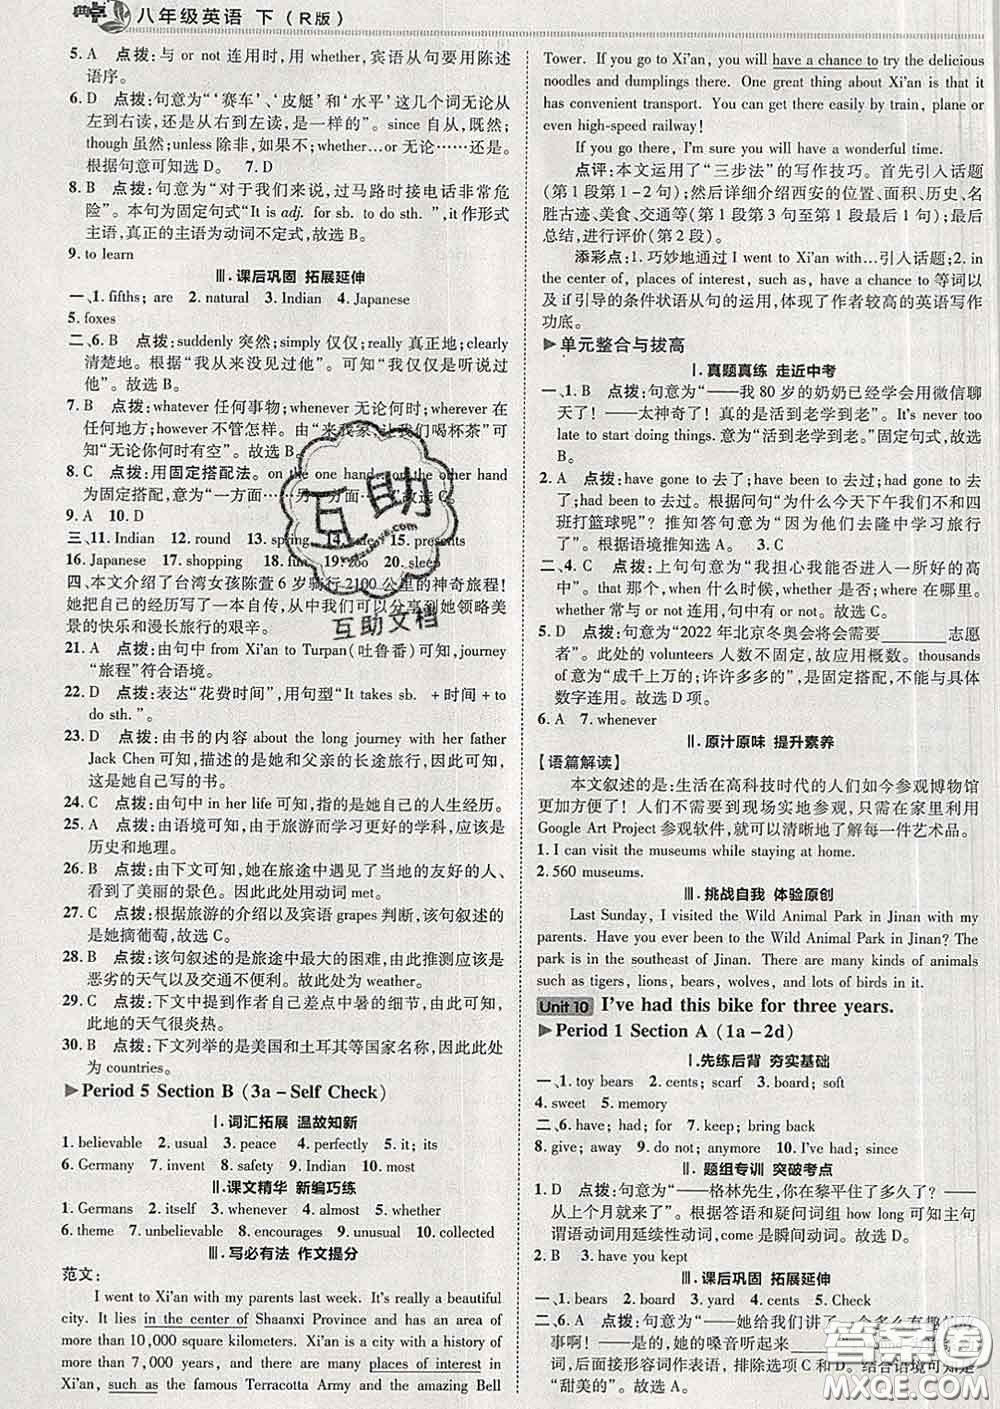 典点 八年级英语 下（R版）
5. A 点拨:与 or not 连用时,用 whether,宾语从句要用陈述
语序。
6. D 点拨:句意为“‘赛车’、‘皮艇’和‘水平’这几个词无论从
左到右读,还是从右到左读,是一样的”。since 自从,既然;
though 虽然;unless 除非,如果不;whether…or 无论……还是。
根据句意可知选 D。 7. D
8. B 点拨:句意为“对于我们来说,过马路时接电话非常危
险”。本句为固定句式“It is adj. for sb. to do sth. ”,it 作形式
主语,真正的主语为动词不定式,故选 B。
9. to learn
Ⅲ.课后巩固 拓展延伸
一、1. fifths; are 2. natural 3. Indian 4. Japanese
5. foxes
二、6. B 点拨:suddenly 突然;simply 仅仅;really 真正地;clearly
清楚地。根据“我从来没见过他”可知“我仅仅是听说过
他”。故选 B。
7. B 点拨:whatever 任何事物;whenever 无论何时;wherever 在
任何地方;however 不管怎样。由“来我家,让我们喝杯茶”可知
“无论你何时有空”。故选 B。
8. C 点拨:用固定搭配法。on the one hand…on the other hand
为固定搭配,意为“一方面……另一方面……”故选 C。
9. A 10. D
三、11. Indian 12. round 13. spring 14. safe 15. presents
16. Japanese 17. shopping 18. fun 19. fox 20. sleep
四、本文介绍了台湾女孩陈萱 6 岁骑行 2100 公里的神奇旅程!
她把自己的经历写了一本自传,从中我们可以分享到她领略美
景的快乐和漫长旅行的艰辛。
21. A 点拨:由句中 from Xi'an to Turpan(吐鲁番)可知,journey
“旅程”符合语境。
22. D 点拨:表达“花费时间”,用句型“It takes sb. +时间+to
do sth. ”。
23. D 点拨:由书的内容 about the long journey with her father
Jack Chen 可知,描述的是她和父亲的长途旅行,因此可知,
这是她自己写的书。
24. C 点拨:由句中 in her life 可知,指的是她自己的人生经历。
25. A 点拨:由语境可知,由于旅游而学习更好的学科,应该是
历史和地理。
26. B 点拨:由下文可知,她在旅途中遇见了当地的友好的人,
看到了美丽的景色。因此此处用动词 met。
27. C 点拨:根据旅游的介绍以及宾语 grapes 判断,该句叙述的
是她摘葡萄,故选 C。
28. B 点拨:该句叙述的是旅途中最大的困难,由此推测应该是
恶劣的天气以及交通不便利。故此处为 weather。
29. C 点拨:下文中提到作者自己差点中暑的细节,由此可知,
此地的天气很炎热。
30. B 点拨:下文列举的是美国和土耳其等国家名称,因此此处
为 countries。
Period 5 Section B (3a－Self Check)
Ⅰ.词汇拓展 温故知新
1. believable 2. usual 3. peace 4. perfectly 5. it; its
6. Germany 7. invent 8. safety 9. Indian 10. most
Ⅱ.课文精华 新编巧练
1. Germans 2. itself 3. whenever 4. almost 5. whether
6. theme 7. unbelievable 8. encourages 9. unusual 10. collected
Ⅲ.写必有法 作文提分
范文:
I went to Xi'an with my parents last week. It's really a beautiful
city. It lies in the center of Shaanxi Province and has an area of
more than 10,000 square kilometers. Xi'an is a city with a history of
more than 7,000 years, and there are many places of interest in
Xi'an, such as the famous Terracotta Army and the amazing Bell
Tower. If you go to Xi'an, you will have a chance to try the delicious
noodles and dumplings there. One great thing about Xi'an is that it
has convenient transport. You can get there easily by train, plane or
even high-speed railway!
If you go there, I'm sure you will have a wonderful time.
点评:本文运用了“三步法”的写作技巧。首先引入话题
(第 1 段第 1－2 句);然后详细介绍西安的位置、面积、历史、名
胜古迹、美食、交通等(第 1 段第 3 句至第 1 段最后 1 句);最后
总结,进行评价(第 2 段)。
添彩点:1. 巧妙地通过 I went to Xi'an with…引入话题;2. in
the center of, places of interest, such as, have a chance to 等词以
及 if 引导的条件状语从句的运用,体现了作者较高的英语写作
功底。
单元整合与拔高
Ⅰ.真题真练 走近中考
一、1. B 点拨:句意为“——我 80 岁的奶奶已经学会用微信聊
天了! ——太神奇了! 真的是活到老学到老”。It's never too
late to start doing things. 意为“活到老学到老”。固定句式,故选
B。
2. A 点拨:have gone to 去了;have been to 去过;had gone to
去了;had been to 去过。根据问句“为什么今天下午我们不和四
班打篮球呢?”推知答句意为“因为他们去隆中学习旅行
了”。根据语境推知选 A。 3. C
二、4. C 点拨:上句句意为“我担心我能否进入一所好的高
中”。if 如果,that 那个,when 什么时候,where 在哪里。
whether 常与 or not 连用,句中有 or not。故选 C。
5. D 点拨:句意为“2022 年北京冬奥会将会需要________志愿
者”。此处的 volunteers 人数不固定,故应用概数。thousands
of 意为“成千上万的;许许多多的”,是固定搭配,不能与具体
数字连用。故选 D 项。
6. A 7. whenever
Ⅱ.原汁原味 提升素养
【语篇解读】
本文叙述的是:生活在高科技时代的人们如今参观博物馆
更加方便了! 人们不需要到现场实地参观,只需在家里利用
Google Art Project 参观软件,就可以清晰地了解每一件艺术品。
1. I can visit the museums while staying at home.
2. 560 museums.
Ⅲ.挑战自我 体验原创
Last Sunday, I visited the Wild Animal Park in Jinan with my
parents. Have you ever been to the Wild Animal Park in Jinan? The
park is in the southeast of Jinan. There are many kinds of animals
such as tigers, lions, bears, wolves, and lots of birds in it.
Unit 10 I've had this bike for three years.
Period 1 Section A (1a－2d)
Ⅰ.先练后背 夯实基础
一、1. toy bears 2. cents; scarf 3. board; soft
4. sweet 5. memory
二、6. have; had; for 7. keep; bring back
8. give; away 9. do not; anymore 10. I've had; since
Ⅱ.题组专训 突破考点
1. D 点拨:句意为“——格林先生,你在黎平住了多久了? ——
从上个月就来了”。根据答语和疑问词组 how long 可知主句
谓语动词用延续性动词,come 是瞬间动词。故选 D。
2. B 3. have you kept
Ⅲ.课后巩固 拓展延伸
一、1. bears 2. board 3. yard 4. cents 5. Check
二、6. A 点拨:句意为“——她给我们讲了一个多么有趣的故
事啊! ——是的,她的嗓音听起来________”
词,后面接形容词作表语, 排除选项 C 和 D。结合语境可知是
“甜美的”。故选 A。
互助
互助文档
答案圈
MXQE.COM